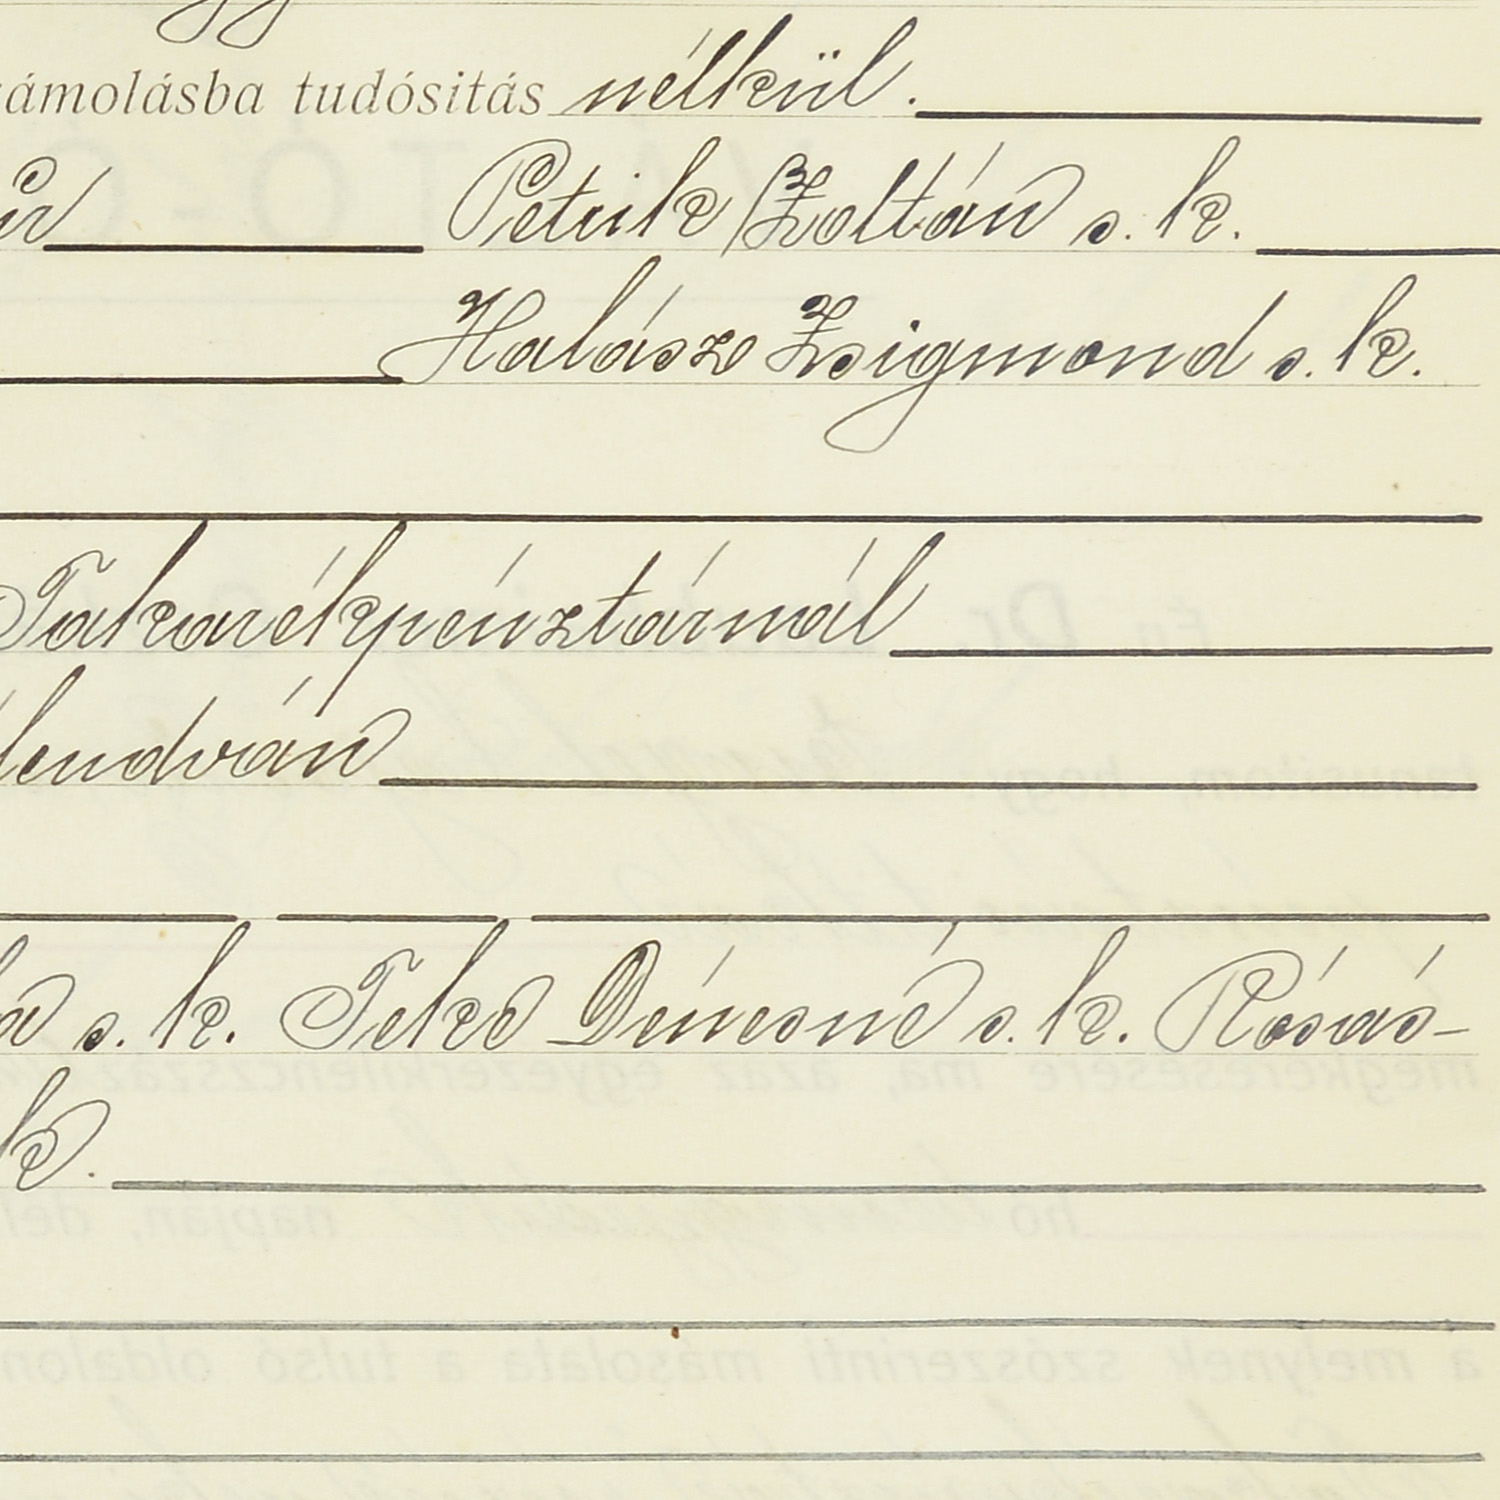 számolásba tudósitás nélkül.
Petrik Zoltán s. k.
Halász Zsigmond s. k.
Takarékpénztárnál
lendván
s. k. Teke Dénesné s. k. Rósás-
k.